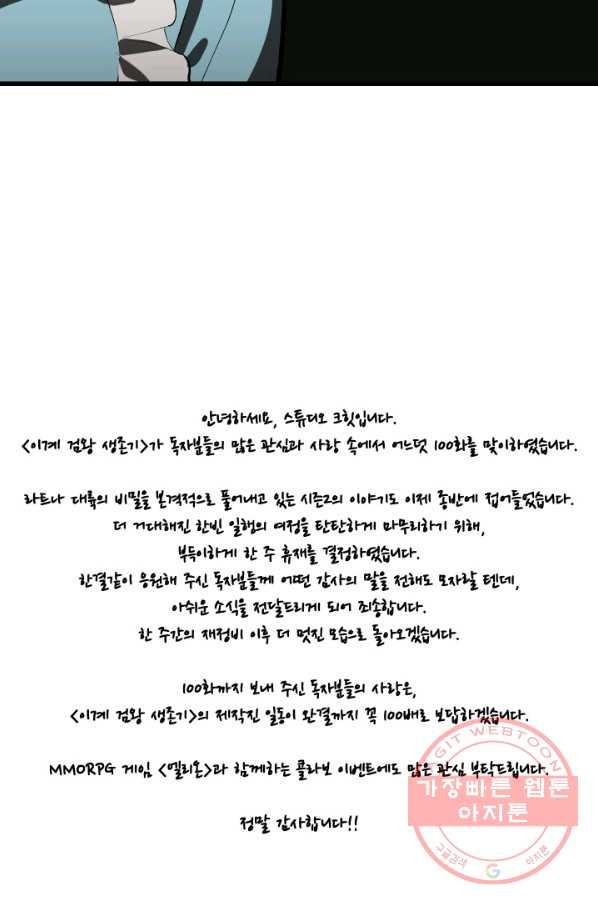 안녕하세요, 스튜디오 크릿입니다.
<이계 검왕 생존기>가 독자분들의 많은 관심과 사랑 속에서 어느덧 100화를 맞이하였습니다.
라트나 대륙의 비밀을 본격적으로 풀어내고 있는 시즌2의 이야기도 이제 종반에 접어들었습니다.
더 거대해진 한빈 일행의 여정을 탄탄하게 마무리하기 위해,
부득이하게 한 주 휴재를 결정하였습니다.
한결같이 응원해 주신 독자분들께 어떤 감사의 말을 전해도 모자랄 텐데,
아쉬운 소식을 전달드리게 되어 죄송합니다.
한 주간의 재정비 이후 더 멋진 모습으로 돌아오겠습니다.
100화까지 보내 주신 독자분들의 사랑은,
<이계 검왕 생존기>의 제작진 일동이 완결까지 꼭 100배로 보답하겠습니다.
MMORPG 게임 <엘리온>과 함께하는 콜라보 이벤트에도 많은 관심 부탁드립니다.
정말 감사합니다!!
AGIT WEBTOON
가장빠른 웹툰
아지툰
구글검색 G 아지툰